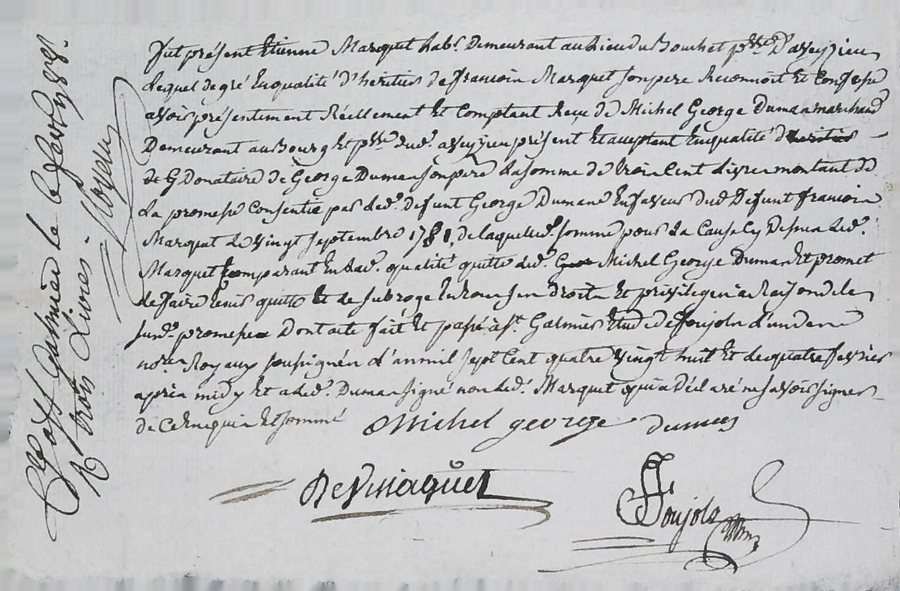 Fut présent Etienne Marquet hab.t Demeurant au lieu du Bouchet p.sse d'aveyzieu
Lequel de gré En qualité d'heritier de francoin Marquet son pere Reconnoit Et Confesse
avoir présentement Réellement Et Comptant Reçu de Michel George Dumas marchand
Demeurant au Bourg et p.sse dud. aveyzieu présent Et acceptant En qualité d'heritier
de G Donataire de George Dumas son pere La somme de trois Cent Livres montant de
La promesse Consentie par led. defunt George Dumas En faveur dud Defunt francoin
Marquet Le vingt septembre 1781, de laquelle d. somme pour La Cause Led.
Marquet Comparant En lad. qualité quitte led. Michel George Dumas Et promet
de faire tenir quitte Et de subroge En tous ses Droits Et privileges a Raison de la
susd. promesse Dont acte fait Et passé à S.t Galmier Etude de foujols d'un des
no.res Royaux soussignés L'an mil sept Cent quatre vingt huit Et le quatre fevrier
après midy Et a led. Dumas signé non led. Marquet qui a Déclaré ne savoir signer
de Ce Requis Et sommé
Michel george dumas
DeViviaquet
Foujols
St Galmier le
trois Livres